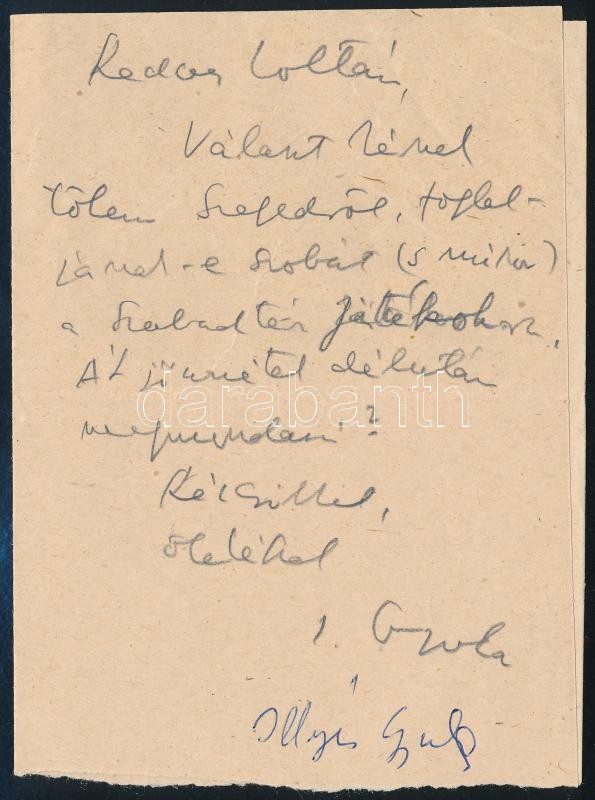 Kedves Zoltán,
Választ kérnek
tőlem Szegedről, foglal-
janak-e szobát (s mikor)
a szabadtéri játékokra.
Át jönnétek délután
megmondani?
Kézcsókkal,
öleléssel
I. Gyula
Illyés Gyula
darabanth